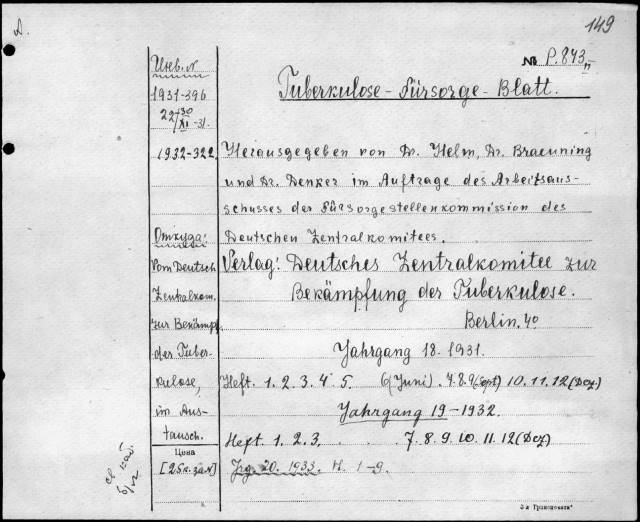 149
№ P. 843
Tuberkulose-Fürsorge-Blatt.
Инв. №
1931-396
22/30 XI -31.
1932-322
Herausgegeben von Dr. Helm, Dr. Braeuning
und Dr. Denker im Auftrage des Arbeitsaus-
schusses der Fürsorgestellenkommission des
Deutschen Zentralkomitees.
Откуда:
Vom Deutsch
Zentralkom.
zur Bekämpf.
der Tuber-
kulose,
im Aus-
tausch.
Verlag: Deutsches Zentralkomitee zur
Bekämpfung der Tuberkulose.
Berlin. 40
Jahrgang 18. 1931.
Heft. 1. 2. 3. 4. 5. 6(Juni). 7. 8. 9(Sept) 10. 11. 12(Dez.)
Jahrgang 19-1932.
Heft 1. 2. 3. 7. 8. 9. 10. 11. 12(Dez)
Jrg. 20. 1933. H. 1-9.
Цена
3-я Транспечати